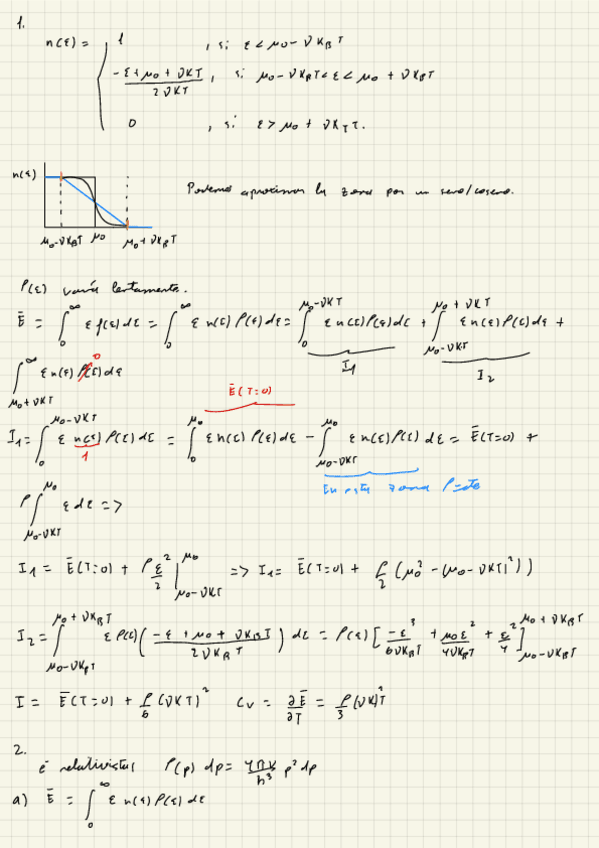 1.
n(ε) = { 1 , si ε < μ₀ - νK_BT
(-ε + μ₀ + νKT)/(2νKT) , si μ₀ - νK_BT < ε < μ₀ + νK_BT
0 , si ε > μ₀ + νK_TT.
n(ε)
Podemos aproximar la zona por un seno/coseno.
μ₀-νK_BT μ₀ μ₀+νK_BT
ρ(ε) varía lentamente.
Ē = ∫₀^∞ ε f(ε) dε = ∫₀^∞ ε n(ε) ρ(ε) dε = ∫₀^{μ₀-νKT} ε n(ε) ρ(ε) dε + ∫_{μ₀-νKT}^{μ₀+νKT} ε n(ε) ρ(ε) dε +
I₁ I₂
∫_{μ₀+νKT}^∞ ε n(ε) ρ(ε) dε 0
Ē(T=0)
I₁ = ∫₀^{μ₀-νKT} ε n(ε) ρ(ε) dε = ∫₀^{μ₀} ε n(ε) ρ(ε) dε - ∫_{μ₀-νKT}^{μ₀} ε n(ε) ρ(ε) dε = Ē(T=0) +
1 En esta zona ρ=cte
ρ ∫_{μ₀-νKT}^{μ₀} ε dε =>
I₁ = Ē(T=0) + ρ ε²/2 |_{μ₀-νKT}^{μ₀} => I₁ = Ē(T=0) + ρ/2 (μ₀² - (μ₀ - νKT)²))
I₂ = ∫_{μ₀-νK_BT}^{μ₀+νK_BT} ε ρ(ε) ( (-ε + μ₀ + νK_BT)/(2νK_BT) ) dε = ρ(ε) [ -ε³/(6νK_BT) + μ₀ε²/(4νK_BT) + ε²/4 ]_{μ₀-νK_BT}^{μ₀+νK_BT}
I = Ē(T=0) + ρ/6 (νKT)² C_V = ∂Ē/∂T = ρ/3 (νK)²T
2.
é relativistas ρ(p) dp = 4πV/h³ p² dp
a) Ē = ∫₀^∞ ε n(ε) ρ(ε) dε